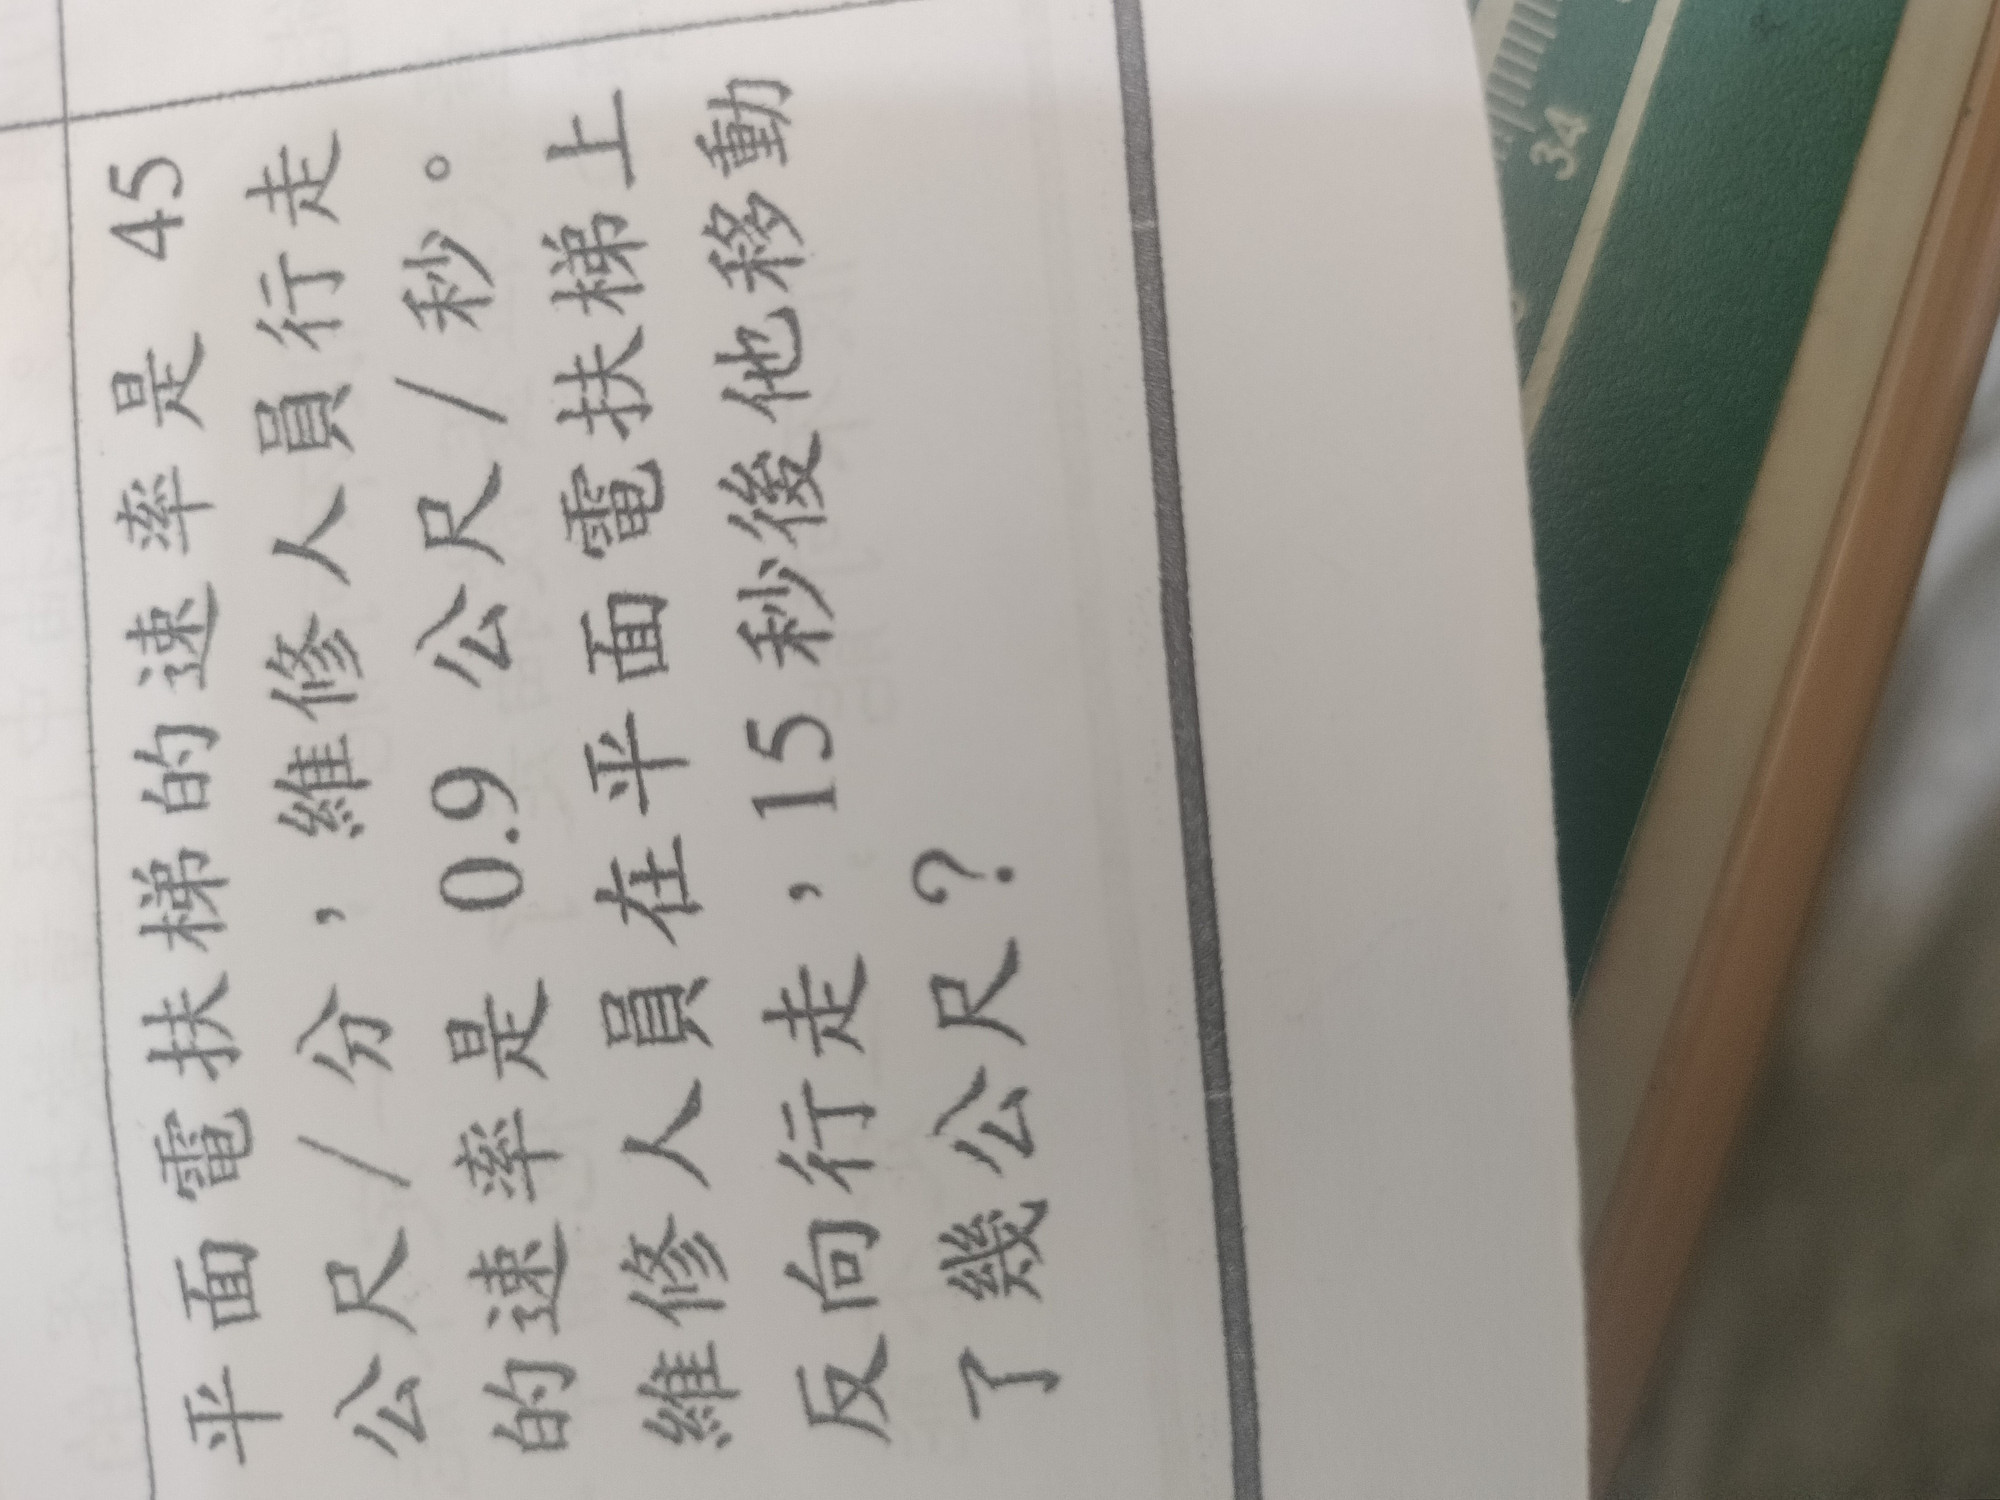 平面電扶梯的速率是 45
公尺/分,維修人員行走
的速率是 0.9 公尺/秒。
維修人員在平面電扶梯上
反向行走,15 秒後他移動
了幾公尺?
34